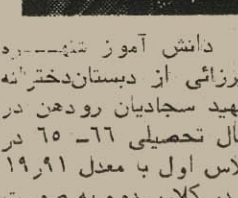 دانش آموز شهـــره
رزائی از دبستان‌دخترانه
هید سجادیان رودهن در
ال تحصیلی ٦٦ـ ٦٥ در
لاس اول با معدل ١٩٫٩١